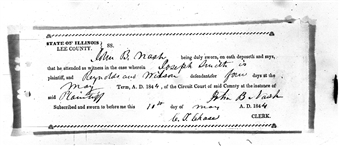 STATE OF ILLINOIS
LEE COUNTY. } SS.
John B. Nash being duly sworn, on oath deposeth and says,
that he attended as witness in the case wherein Joseph Smith is
plaintiff, and Reynolds and Wilson defendants for four days at the
May Term, A. D. 1844, of the Circuit Court of said County at the instance of
said Plaintiff John B. Nash
Subscribed and sworn to before me this 10th day of May A. D. 1844
CLERK.